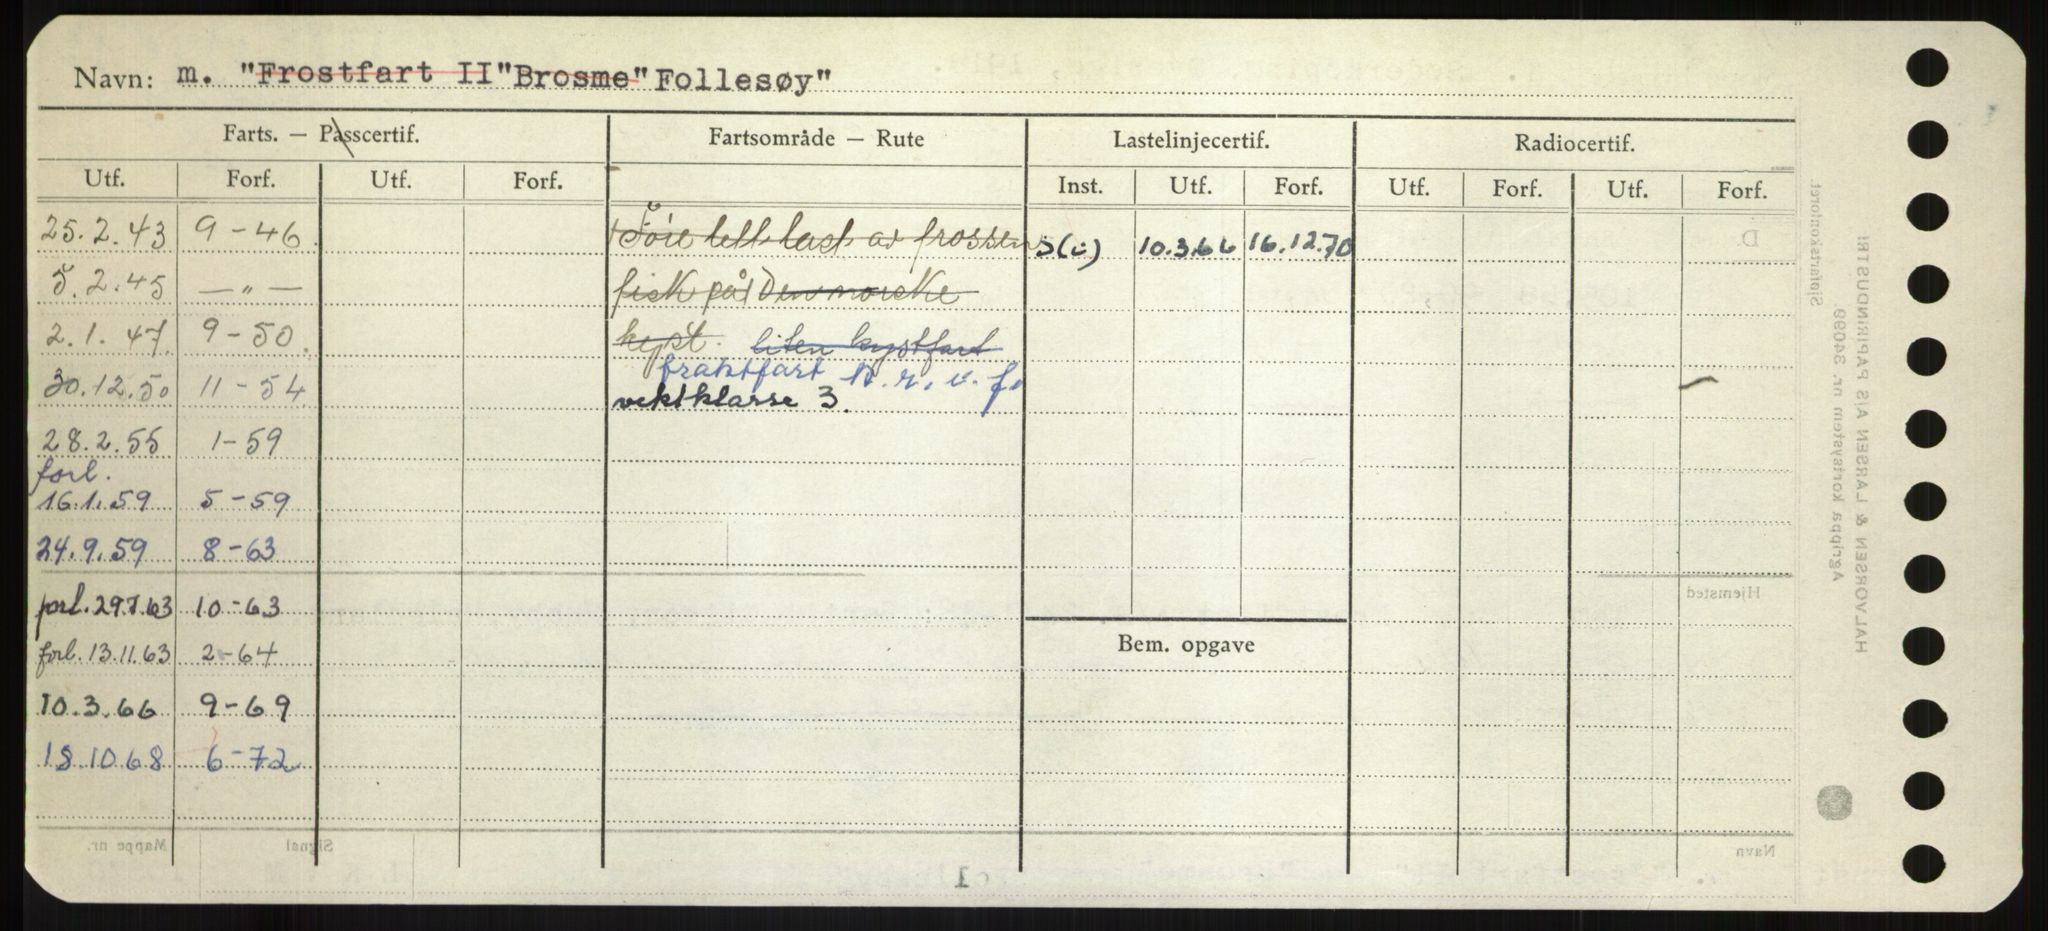 Navn: m. "Frostfart II" "Brosme" Follesøy"
Farts. — Passcertif. Fartsområde — Rute Lastelinjecertif. Radiocertif.
Utf. Forf. Utf. Forf. Inst. Utf. Forf. Utf. Forf. Utf. Forf.
25.2.43 9-46 Före lett last av frossen S(c) 10.3.66 16.12.70
5.2.45 — " — fisk på Den norske
2.1.47. 9-50. kyst. liten kystfart
fraktfart N. r. u. f.
30.12.50 11-54 vektklasse 3.
28.2.55 1-59
forl.
16.1.59 5-59
24.9.59 8-63
forl. 29.7.63 10-63
forl. 13.11.63 2-64
Bem. opgave
10.3.66 9-69
18.10.68 6-72
Mappe nr. Signal Navn
Hjemsted
D
Sjøfartskontoret.
Agrippa kortsystem nr. 34099.
HALVORSEN & LARSEN A/S PAPIRINDUSTRI